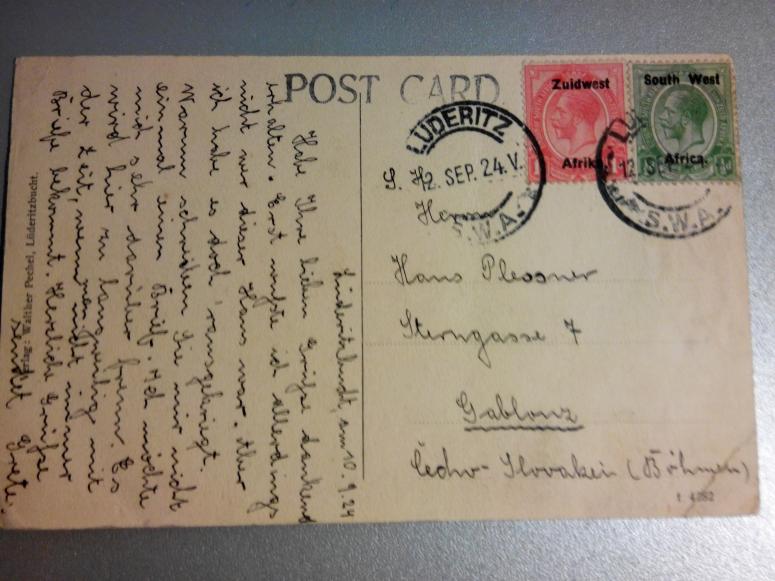 POST CARD
Zuidwest
Afrika.
South West
Africa.
LÜDERITZ
12. SEP. 24. V.
S.W.A.
12 SEP
S.W.A.
S. H.
Herrn
Hans Plessner
Sterngasse 7
Gablonz
Čecho-Slovakei (Böhmen)
Lüderitzbucht, am 10.9.24
Habe Ihre lieben Grüße dankend
erhalten. Erst wußte ich allerdings
nicht wer dieser Hans war. Aber
ich habe es doch rausgekriegt.
Warum schreiben Sie mir nicht
einmal einen Brief. Ich möchte
mich sehr darüber freun. Es
wird hier zu langweilig mit
der Zeit, wenn man nicht immer
Briefe bekommt. Herzliche Grüße
sendet Grete.
Verlag: Walther Pechel, Lüderitzbucht.